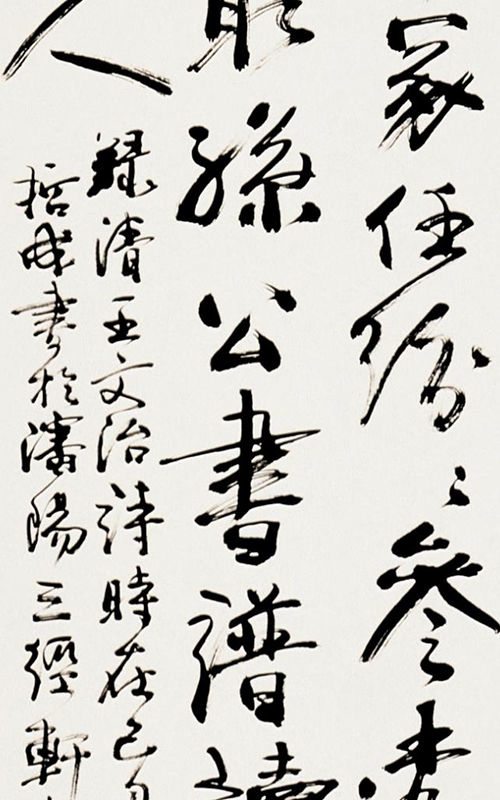 冢任紛々參透
取孫公書譜讀
人
錄清王文治詩時在己
書於瀋陽三經軒